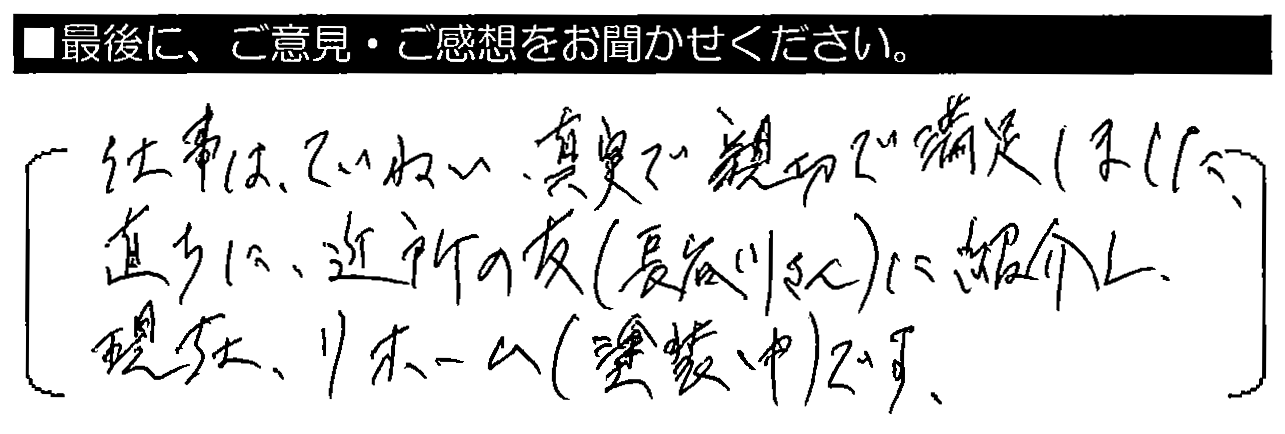 ■最後に、ご意見・ご感想をお聞かせください。
仕事は、ていねい、真実で親切で満足しました、
直ちに、近所の友(長谷川さん)に紹介し、
現在、リホーム(塗装中)です、